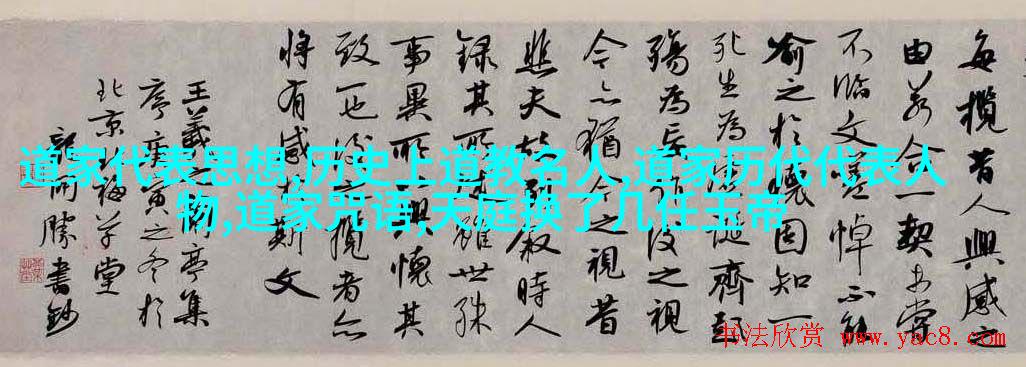 每攬昔人興感之
由若合一契未嘗
不臨文嗟悼不能
喻之於懷固知一
死生為虛誕齊彭
殤為妄作後之視
今亦猶今之視昔
悲夫故列敘時人
錄其所述雖世殊
事異所以興懷其
致一也後之攬者亦
將有感於斯文
王羲之蘭亭集
序庚寅之冬於
北京梅草堂
勝書鈔
道家代表思想,历史上道教名人,道家历代代表人
物,道家咒语,天庭换了几任玉帝
书法欣赏 www.yac8.com